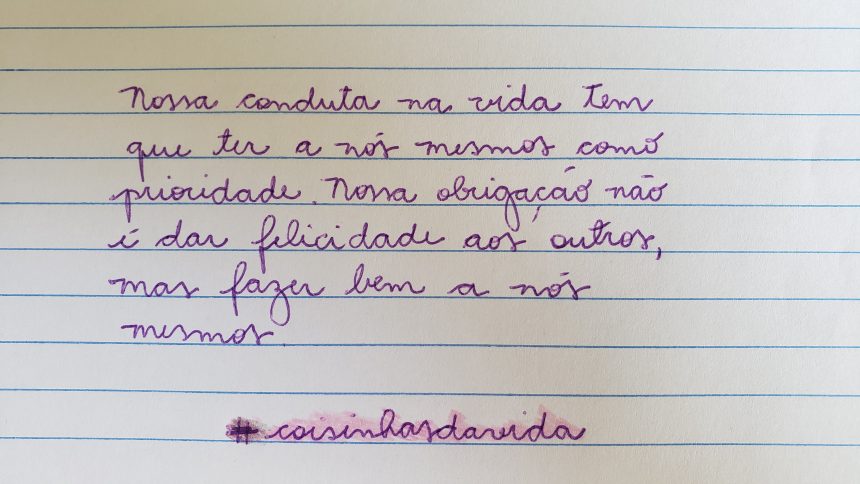 Nossa conduta na vida tem
que ter a nós mesmos como
prioridade. Nossa obrigação não
é dar felicidade aos outros,
mas fazer bem a nós
mesmos.
#coisinhasdavida